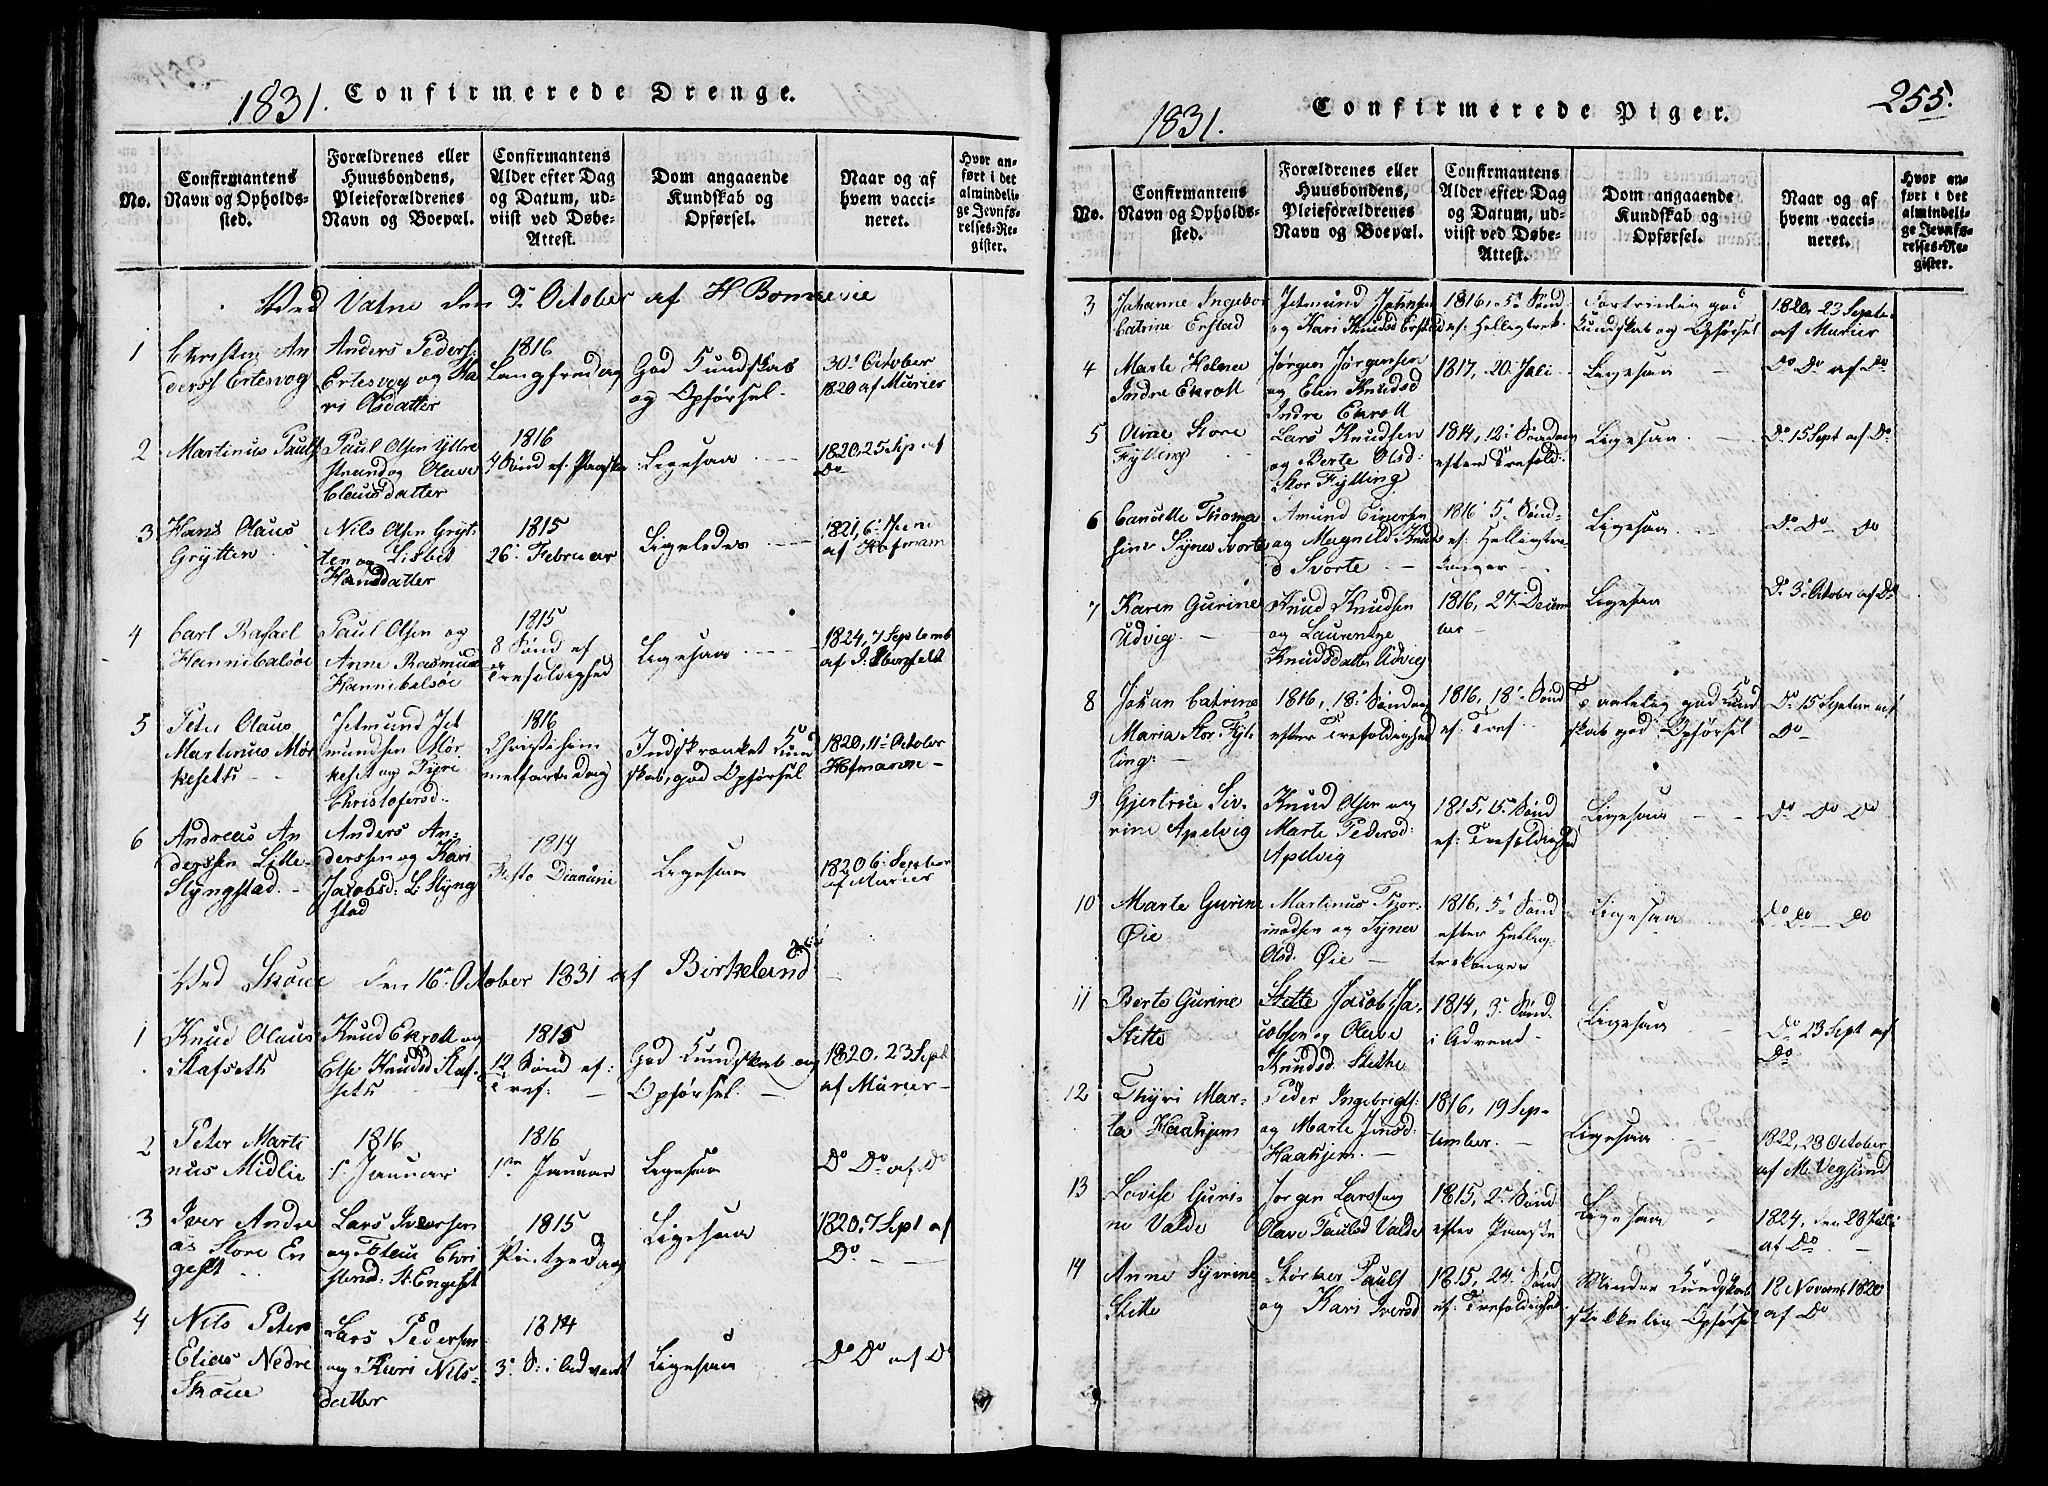 1831. Confirmerede Drenge.
No.
Confirmantens
Navn og Opholds-
sted.
Forældrenes eller
Huusbondens,
Pleieforældrenes
Navn og Boepæl.
Confirmantens
Alder efter Dag
og Datum, ud-
viist ved Døbe-
Attest.
Dom angaaende
Kundskab og
Opførsel.
Naar og af
hvem vacci-
neret.
Hvor an-
ført i det
almindeli-
ge Jevnfø-
relses-Re-
gister.
Ved Vatne den 9de October af H Bonnevie
1
Christen An
derss Ertesvog
Anders Peders:
Ertesvog og Ka
ri Olsdatter
1816
Langfredag
God Kundskab
og Opførsel.
30. October
1820 af Murier
2
Martinus Pauls
Paul Olsen Yttre
strand og Olave
Clausdatter
1816
4 Sønd ef. Paaske
Ligesaa
1820, 25 Sep af
Do
3
Hans Olaus
Grytten
Nils Olsen Gryt
ten og Lisbet
Hansdatter
1815
26. Februar
Ligeledes
1821, 6. Juni
af Hofman
4
Carl Rafael
Hannibalsøe
Paul Olsen og
Anne Rasmusd
Hannibalsøe
1815
8 Sønd ef
Trefoldighed
Ligesaa
1824, 7 Septemb
af
5
Peter Olaus
Martinus Mør
kesett
Jetmund Jet
mundsen Mør
keset og Tyri
Christofersd
1816
Christi him
melfartsdag
Indskrænket Kund
skab, god Opførsel
1820, 11. October
Hofmann
6
Andreas An
derssen Lille-
Slyngstad.
Anders An-
derssen og Kari
Jacobsd: L: Slyng
stad
1814
Festo
Ligesaa
1820 6. Septber
af Murier
Ved Skoue den 16. October 1831 af Birkeland
1
Knud Olaus
Stafseth
Knud Ekroll og
Else Knudsd Staf
seth
1815
12 Sønd ef:
Tref:
God Kundskab og
Opførsel.
1820, 23 Sept
af Murier
2
Peter Marti
nus Midlie
1816
1. Januar
1816
1ste Januar
Ligesaa
Do Do af Do
3
Iver Andre
as Store En
geset
Lars Iversen
og Christensd: St: Engeset
1815
Pintsedag
Ligesaa
1820, 7 Sept af
Do
4
Nils Peter
Elias Nedre
Skoue
Lars Pedersen
og Kari Nils-
datter
1814
3. S: i Advent
Ligesaa
Do Do af Do
1831. Confirmerede Piger. 255.
No.
Confirmantens
Navn og Opholds-
sted.
Forældrenes eller
Huusbondens,
Pleieforældrenes
Navn og Boepæl.
Confirmantens
Alder efter Dag
og Datum, ud-
viist ved Døbe-
Attest.
Dom angaaende
Kundskab og
Opførsel.
Naar og af
hvem vacci-
neret.
Hvor an-
ført i det
almindeli-
ge Jevnfø-
relses-Re-
gister.
3
Johanne Ingebor
Catrine Erstad
Jetmund Johnsen
og Kari Knudsd Erstad
1816, 5. Sønd
ef: Helligtrek.
Fortrinlig god
Kundskab og Opførsel
1820, 23 Septe.
af Murier
4
Marte Helene
Indre Ekroll
Jørgen Jørgensen
og Elen Knudsd
Indre Ekroll
1817, 20. Juli
Ligesaa
Do Do af Do
5
Oline Store
Fylling
Lars Knudsen
og Berte Olsd:
Stor Fylling
1814, 12. Søndag
efter Trefold:
Ligesaa
Do 15 Sept af Do
6
Cancelle Thoma
sine Synes Svorte
Amund Einersen
og Magnild Knuds
d Svorte
1816 5. Sønd
ef: Helligtre-
konger
Ligesaa
Do Do Do
7
Karen Gurine
Udvig
Knud Knudsen
og Laurentze
Knudsdatter Udvig
1816, 27. Decem
ber
Ligesaa
Do 3. October af Do
8
Johan Catrine
Maria Stor Fyl-
ling
1816, 18. Søndag
efter Trefoldighed
1816, 18. Sønd
ef: Tref:
Taalelig god Kund
skab god Opførsel
Do 15 Septem af
Do
9
Gjertine Siv-
rine Apelvig
Knud Olsen og
Marte Pedersd:
Apelvig
1815, 15. Sønd
ef: Trefoldighed
Ligesaa
Do Do Do
10
Marte Gurine
Øie
Martinus Thor-
modsen og Synev
Olsd. Øie
1816, 5. Sønd
efter Hellig
trekonger
Ligesaa
Do Do Do
11
Berte Gurine
Stette
Stette Jacob Ja-
cobsen og Olave
Knudsd. Stette
1814, 3. Sønd.
i Advend
Ligesaa
Do 23 Sept af
Do
12
Thyri Mar-
ta Haahjem
Peder Ingebrigts:
og Marte Jensd:
Haahjem.
1816, 19 Sep-
tember.
Ligesaa
1822, 28 October
af M: Vegsund
13
Lovise Guri-
ne Valde
Jørgen Larss og
Olave Paulsd Valde
1815, 2. Sønd
efter Paaske
Ligesaa
1824, den 28 Juli
af Do
14
Anne Syvrine
Stette
Størker Pauls
og Kari Iversd
1815, 24. Sønd
ef: Trefoldighed.
Minder Kundskab
skikkelig Opførsel
18 Novemb 1820
af Do